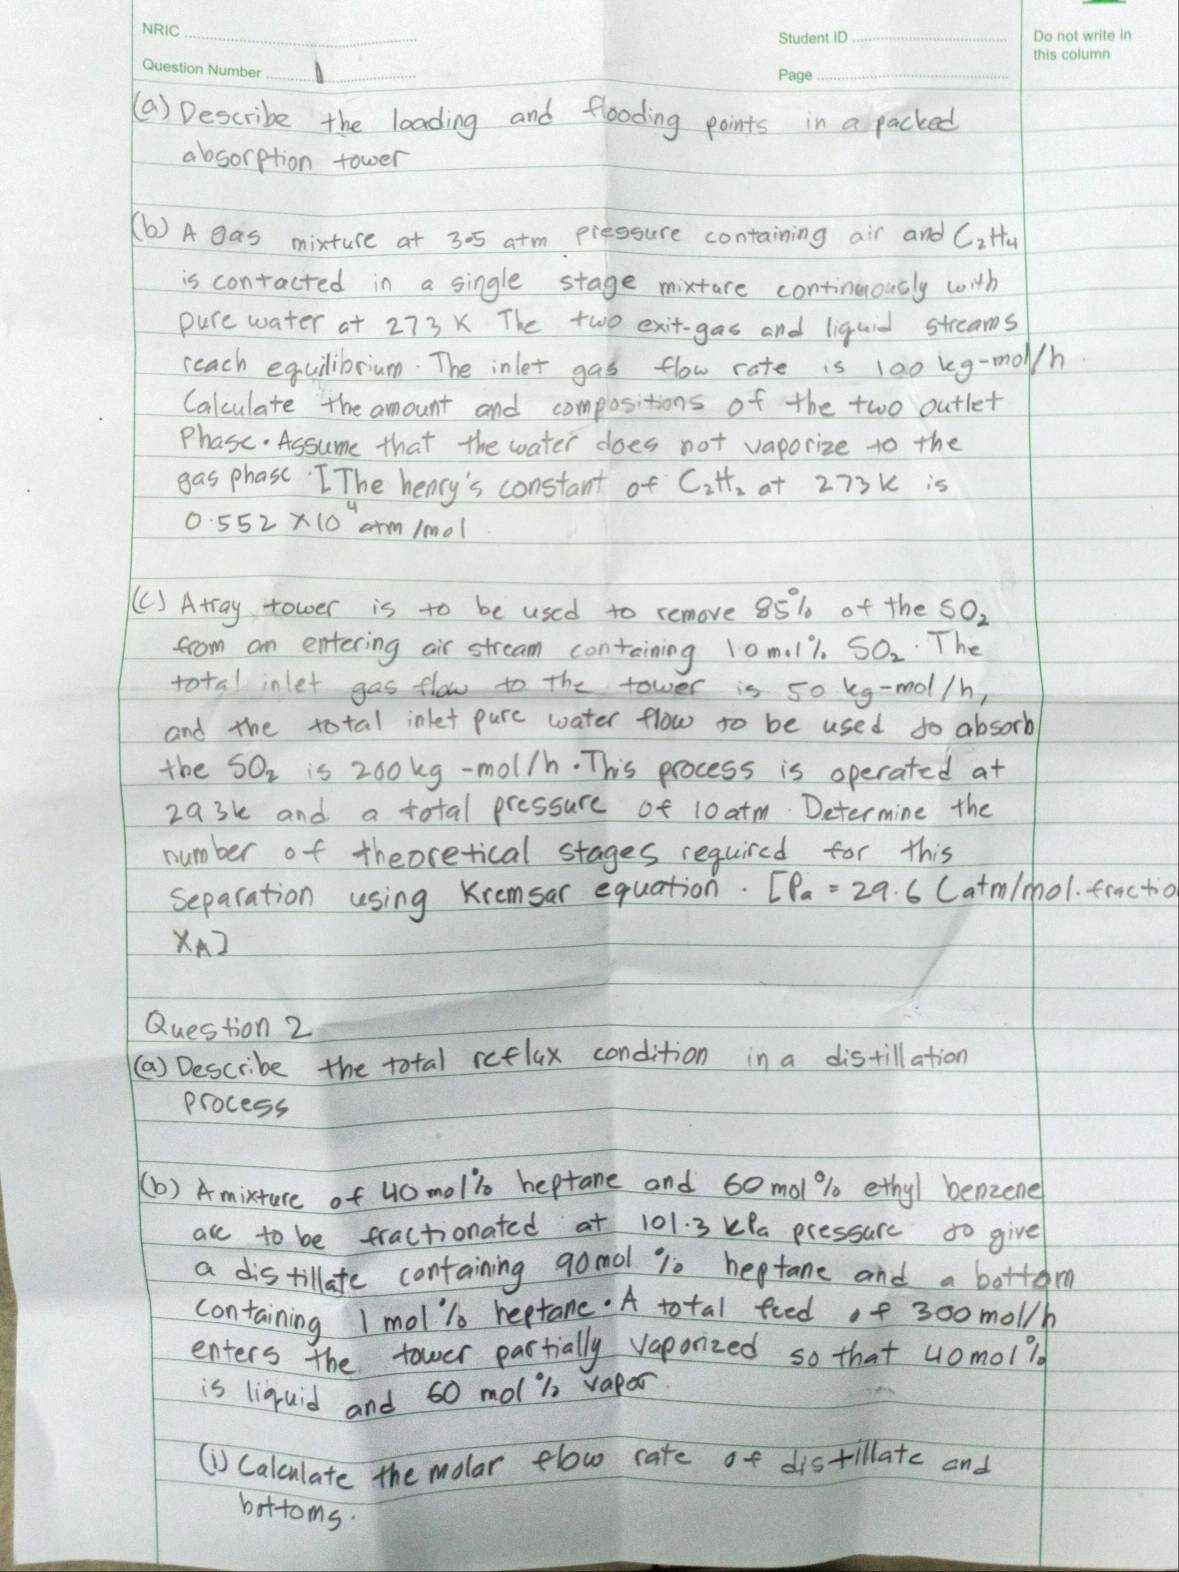 NRIC
Student ID
Do not write in
this column
Question Number 1
Page
(a) Describe the loading and flooding points in a packed
absorption tower
(b) A gas mixture at 3.5 atm pressure containing air and C₂H₄
is contacted in a single stage mixture continuously with
pure water at 273 K The two exit-gas and liquid streams
reach equilibrium. The inlet gas flow rate is 100 kg-mol/h.
Calculate the amount and compositions of the two outlet
Phase. Assume that the water does not vaporize to the
gas phase. [The henry's constant of C₂H₂ at 273 K is
0.552 x10⁴ atm/mol.
(c) A tray tower is to be used to remove 85% of the SO₂
from an entering air stream containing 10 mol% SO₂. The
total inlet gas flow to the tower is 50 kg-mol/h,
and the total inlet pure water flow to be used to absorb
the SO₂ is 200 kg-mol/h. This process is operated at
293k and a total pressure of 10 atm. Determine the
number of theoretical stages required for this
separation using Kremsar equation. [Pa = 29.6 (atm/mol.fractio
XA]
Question 2
(a) Describe the total reflux condition in a distillation
process
(b) A mixture of 40 mol% heptane and 60 mol% ethyl benzene
are to be fractionated at 101.3 kPa pressure to give
a distillate containing 90 mol % heptane and a bottom
containing 1 mol% heptane. A total feed of 300 mol/h
enters the tower partially vaporized so that 40 mol%
is liquid and 60 mol% vapor.
(i) Calculate the molar flow rate of distillate and
bottoms.